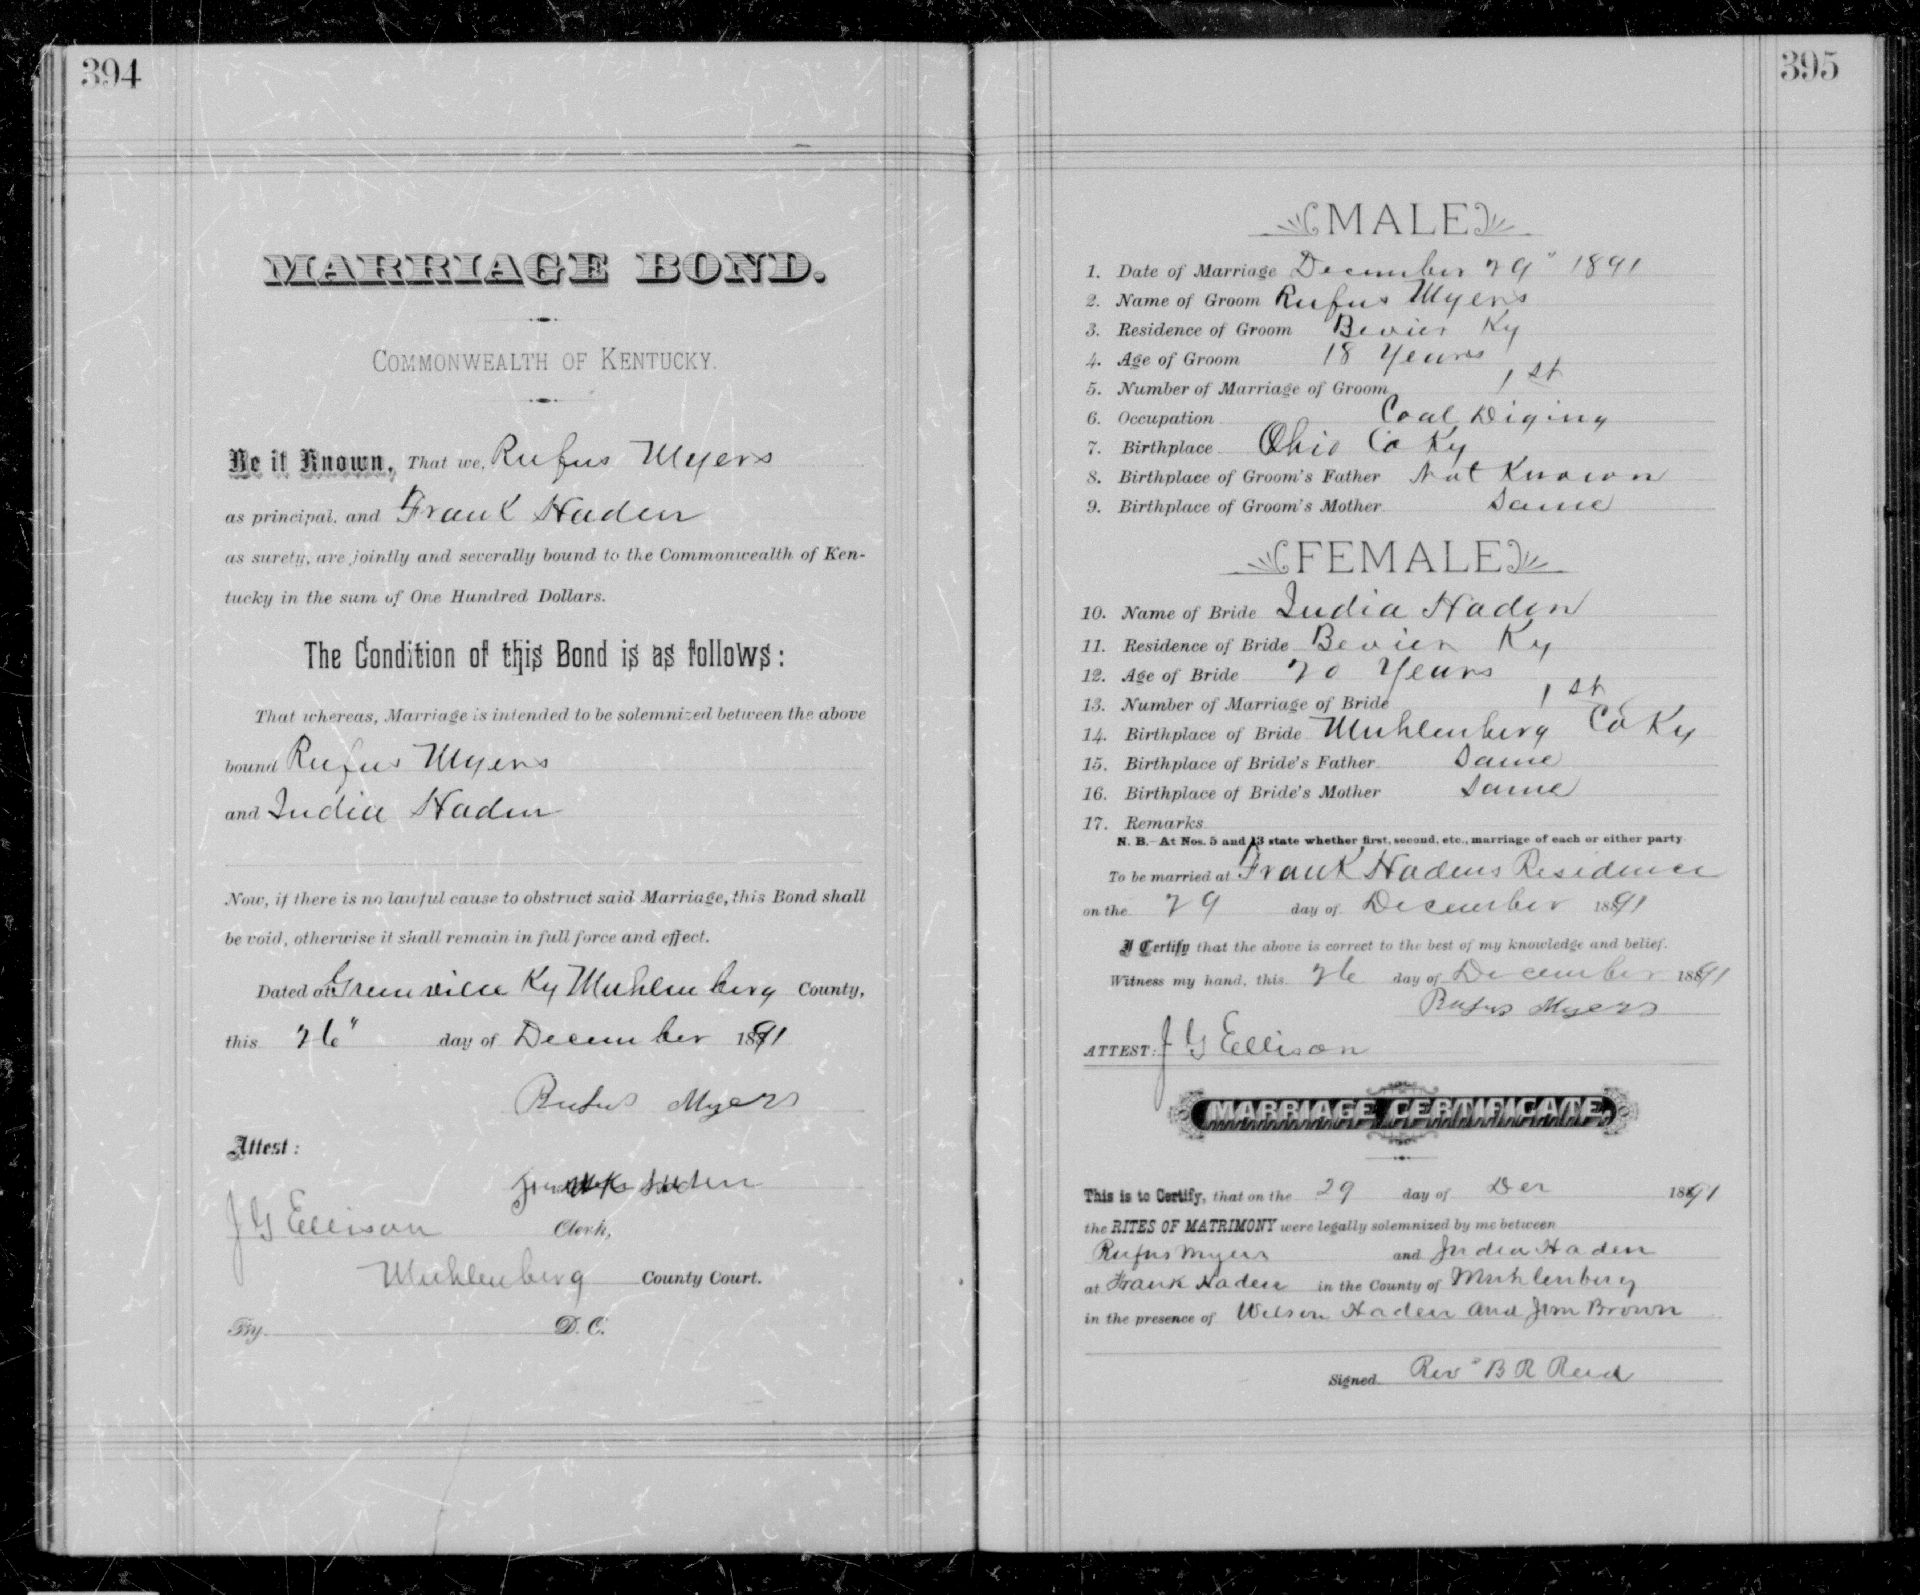 394
MARRIAGE BOND.
COMMONWEALTH OF KENTUCKY.
Be it Known, That we, Rufus Myers
as principal, and Frank Haden
as surety, are jointly and severally bound to the Commonwealth of Ken-
tucky in the sum of One Hundred Dollars.
The Condition of this Bond is as follows:
That whereas, Marriage is intended to be solemnized between the above
bound Rufus Myers
and India Haden
Now, if there is no lawful cause to obstruct said Marriage, this Bond shall
be void, otherwise it shall remain in full force and effect.
Dated at Greenville Ky Muhlenberg County,
this 26" day of December 1891
Rufus Myers
Attest:
Frank Haden
J G Ellison Clerk,
Muhlenberg County Court.
By D. C.
395
MALE
1. Date of Marriage December 29" 1891
2. Name of Groom Rufus Myers
3. Residence of Groom Bevier Ky
4. Age of Groom 18 Years
5. Number of Marriage of Groom 1st
6. Occupation Coal Diging
7. Birthplace Ohio Co Ky
8. Birthplace of Groom's Father Not Known
9. Birthplace of Groom's Mother Same
FEMALE
10. Name of Bride India Haden
11. Residence of Bride Bevier Ky
12. Age of Bride 20 Years
13. Number of Marriage of Bride 1st
14. Birthplace of Bride Muhlenberg Co Ky
15. Birthplace of Bride's Father Same
16. Birthplace of Bride's Mother Same
17. Remarks
N. B.—At Nos. 5 and 13 state whether first, second, etc., marriage of each or either party
To be married at Frank Hadens Residence
on the 29 day of December 1891
I Certify that the above is correct to the best of my knowledge and belief.
Witness my hand, this 26 day of December 1891
Rufus Myers
ATTEST: J G Ellison
MARRIAGE CERTIFICATE.
This is to Certify, that on the 29 day of Der 1891
the RITES OF MATRIMONY were legally solemnized by me between
Rufus Myers and India Haden
at Frank Haden in the County of Muhlenberg
in the presence of Wilson Haden and Jim Brown
Signed Rev" B R Reid